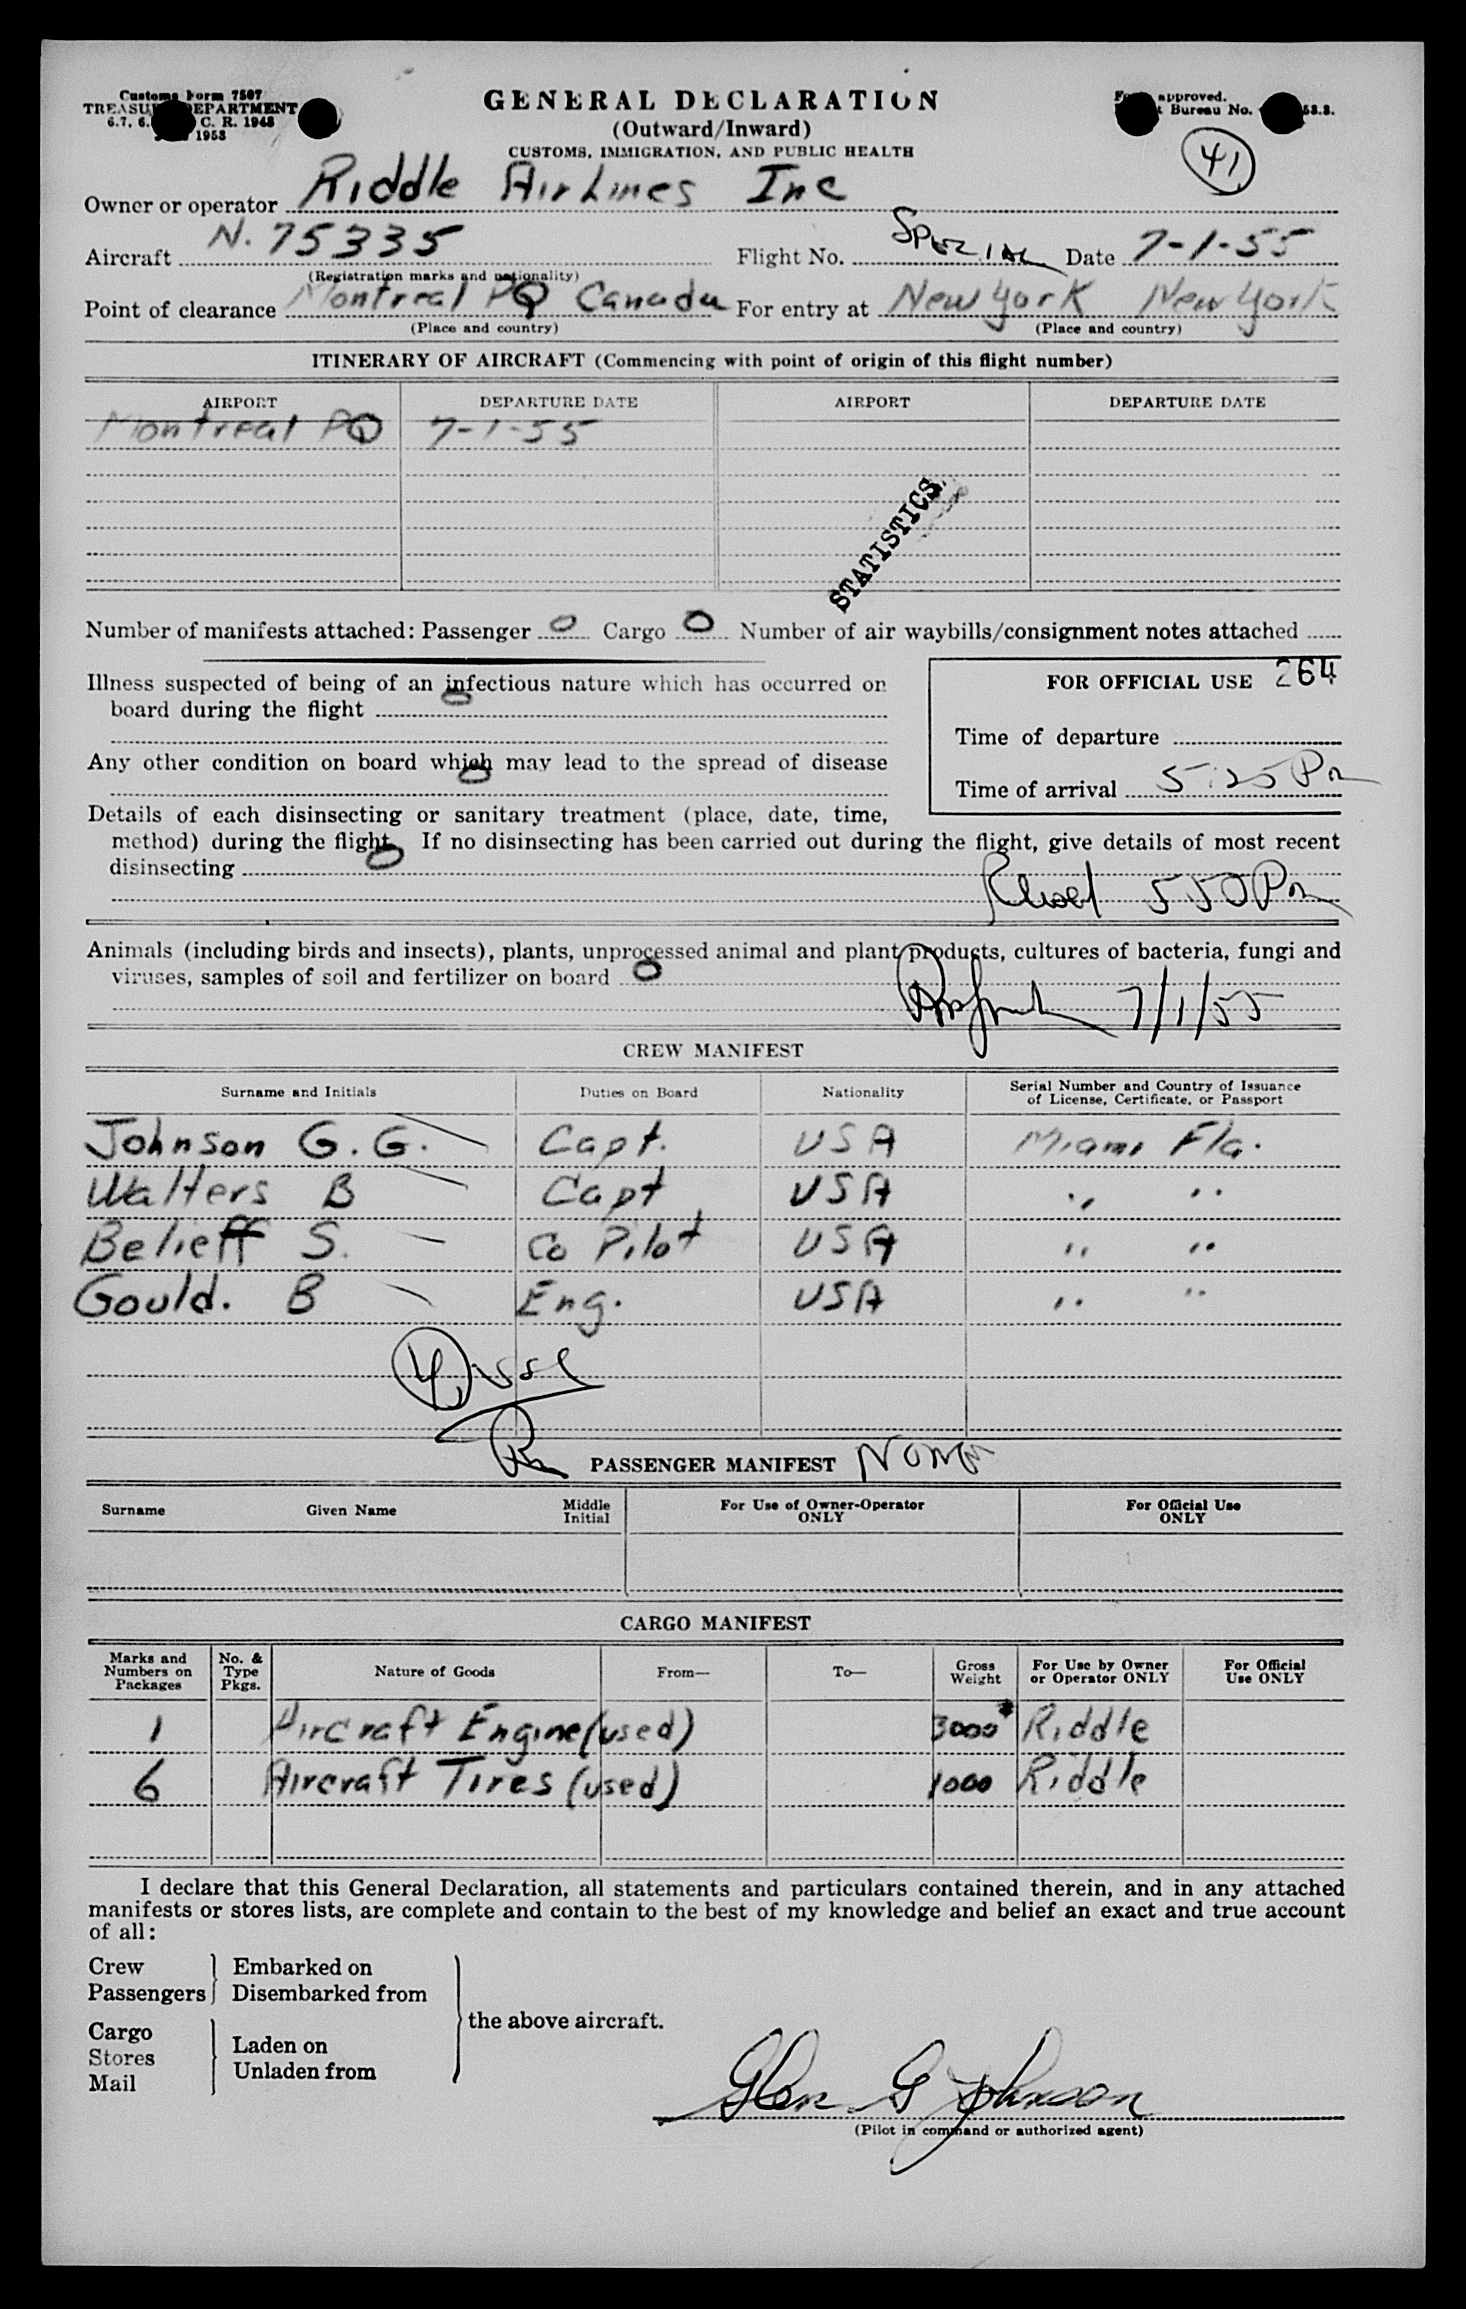 Customs Form 7507
TREASURY DEPARTMENT
C. R. 1948
1953
GENERAL DECLARATION
(Outward/Inward)
CUSTOMS, IMMIGRATION, AND PUBLIC HEALTH
approved.
Bureau No.
41
Owner or operator Riddle AirLines Inc
Aircraft N. 75335 Flight No. SPECIAL Date 7-1-55
(Registration marks and nationality)
Point of clearance Montreal PQ Canada For entry at New York New York
(Place and country) (Place and country)
ITINERARY OF AIRCRAFT (Commencing with point of origin of this flight number)
AIRPORT DEPARTURE DATE AIRPORT DEPARTURE DATE
Montreal PQ 7-1-55
STATISTICS
Number of manifests attached: Passenger 0 Cargo 0 Number of air waybills/consignment notes attached
Illness suspected of being of an infectious nature which has occurred on
board during the flight 0
FOR OFFICIAL USE 264
Time of departure
Any other condition on board which may lead to the spread of disease
0
Time of arrival 5:25 Pm
Details of each disinsecting or sanitary treatment (place, date, time,
method) during the flight. If no disinsecting has been carried out during the flight, give details of most recent
disinsecting 0
550 Pm
Animals (including birds and insects), plants, unprocessed animal and plant products, cultures of bacteria, fungi and
viruses, samples of soil and fertilizer on board 0
7/1/55
CREW MANIFEST
Surname and Initials Duties on Board Nationality Serial Number and Country of Issuance
of License, Certificate, or Passport
Johnson G. G. Capt. USA Miami Fla.
Walters B Capt USA " "
Belieff S. Co Pilot USA " "
Gould. B Eng. USA " "
4 USC
PASSENGER MANIFEST None
Surname Given Name Middle Initial For Use of Owner-Operator ONLY For Official Use ONLY
CARGO MANIFEST
Marks and Numbers on Packages No. & Type Pkgs. Nature of Goods From— To— Gross Weight For Use by Owner or Operator ONLY For Official Use ONLY
1 Aircraft Engine (used) 3000# Riddle
6 Aircraft Tires (used) 1000 Riddle
I declare that this General Declaration, all statements and particulars contained therein, and in any attached
manifests or stores lists, are complete and contain to the best of my knowledge and belief an exact and true account
of all:
Crew Embarked on
Passengers Disembarked from
the above aircraft.
Cargo
Stores Laden on
Mail Unladen from
Glen G Johnson
(Pilot in command or authorized agent)